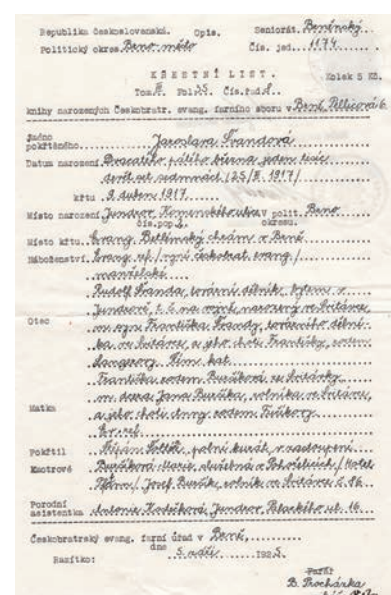 Republika československá. Opis. Seniorát. Brněnský
Politický okres. Brno-město Čís. jed. 1174
KŘESTNÍ LIST. Kolek 5 Kč.
Tom. III Fol. 35 Čís. řad. 8.
knihy narozených Českobratr. evang. farního sboru v Brně,
Jméno
pokřtěného Jaroslava Frandová
Datum narození Dvacátého pátého března jeden tisíc
devět set sedmnáct (25/III 1917)
křtu 9. duben 1917
Místo narození Jundrov Komenského ulice v polit. Brno
čís. pop. okresu.
Místo křtu Evang. Betlémský chrám v Brně
Náboženství Evang. ref. / nyní českobrat. evang. /
manželské
Rudolf Franda, tovární dělník, bytem v
Jundrově, t. č. na vojně, narozený ve Svitávce,
Otec
m. syn Františka Frandy, továrního dělní-
ka ve Svitávce, a jeho choti Františky, rodem
Řím. kat.
Františka rodem ve Svitávky
m. dcera Jana rolníka ve Svitávce,
Matka
a jeho choti Anny rodem
Ev. ref.
Pokřtil polní kurát, v zastoupení
Kmotrové Marie, služebná v
Josef rolník ve Svitávce č. 16
Porodní
asistentka Antonie Jundrov, Palackého ul. 16
Českobratrský evang. farní úřad v Brně,
dne 5. září 1925.
Razítko: Farář
B. Procházka